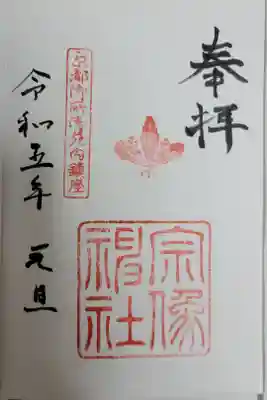 奉拝
宗像
神社
京都御所御苑内鎮座
令和五年 元旦